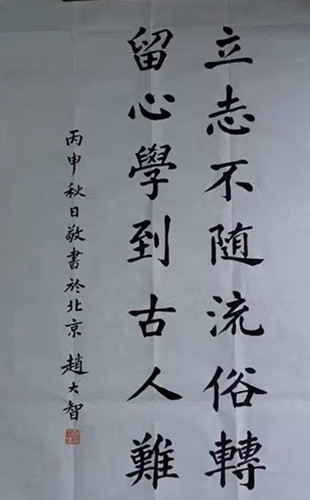 立志不随流俗轉
留心學到古人難
丙申秋日敬書於北京 趙大智